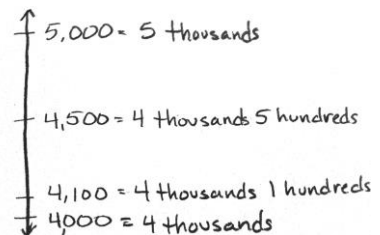 5,000 = 5 thousands
4,500 = 4 thousands 5 hundreds
4,100 = 4 thousands 1 hundreds
4,000 = 4 thousands